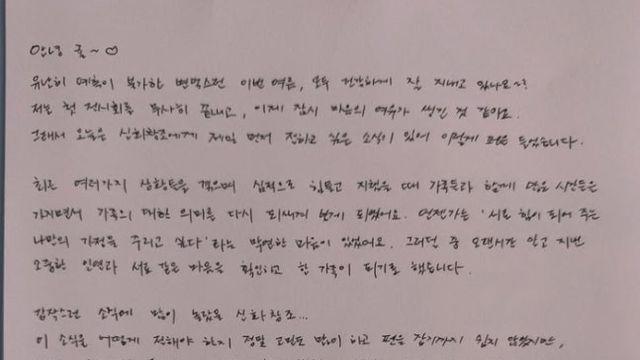 안녕 줌~♡
유난히 예측이 불가한 변덕스런 이번 여름, 모두 건강하게 잘 지내고 있나요~?
저는 첫 전시회를 무사히 끝내고, 이제 잠시 마음의 여유가 생긴 것 같아요.
그래서 오늘은 신화창조에게 제일 먼저 전하고 싶은 소식이 있어 이렇게 펜을 들었습니다.
최근 여러가지 상황들을 겪으며 심적으로 힘들고 지쳤을 때 가족들과 함께 많은 시간들은
가지면서 가족의 대한 의미를 다시 되새겨 보게 되었어요. 언젠가는 '서로 힘이 되어 주는
나만의 가정을 꾸리고 싶다'라는 막연한 마음이 있었어요. 그러던 중 오랜시간 알고 지낸
소중한 인연과 서로 같은 마음을 확인하고 한 가족이 되기로 했습니다.
갑작스런 소식에 많이 놀랐을 신화창조...
이 소식을 어떻게 전해야 할지 정말 고민도 많이 하고 펜을 잡기까지 쉽지 않았지만,